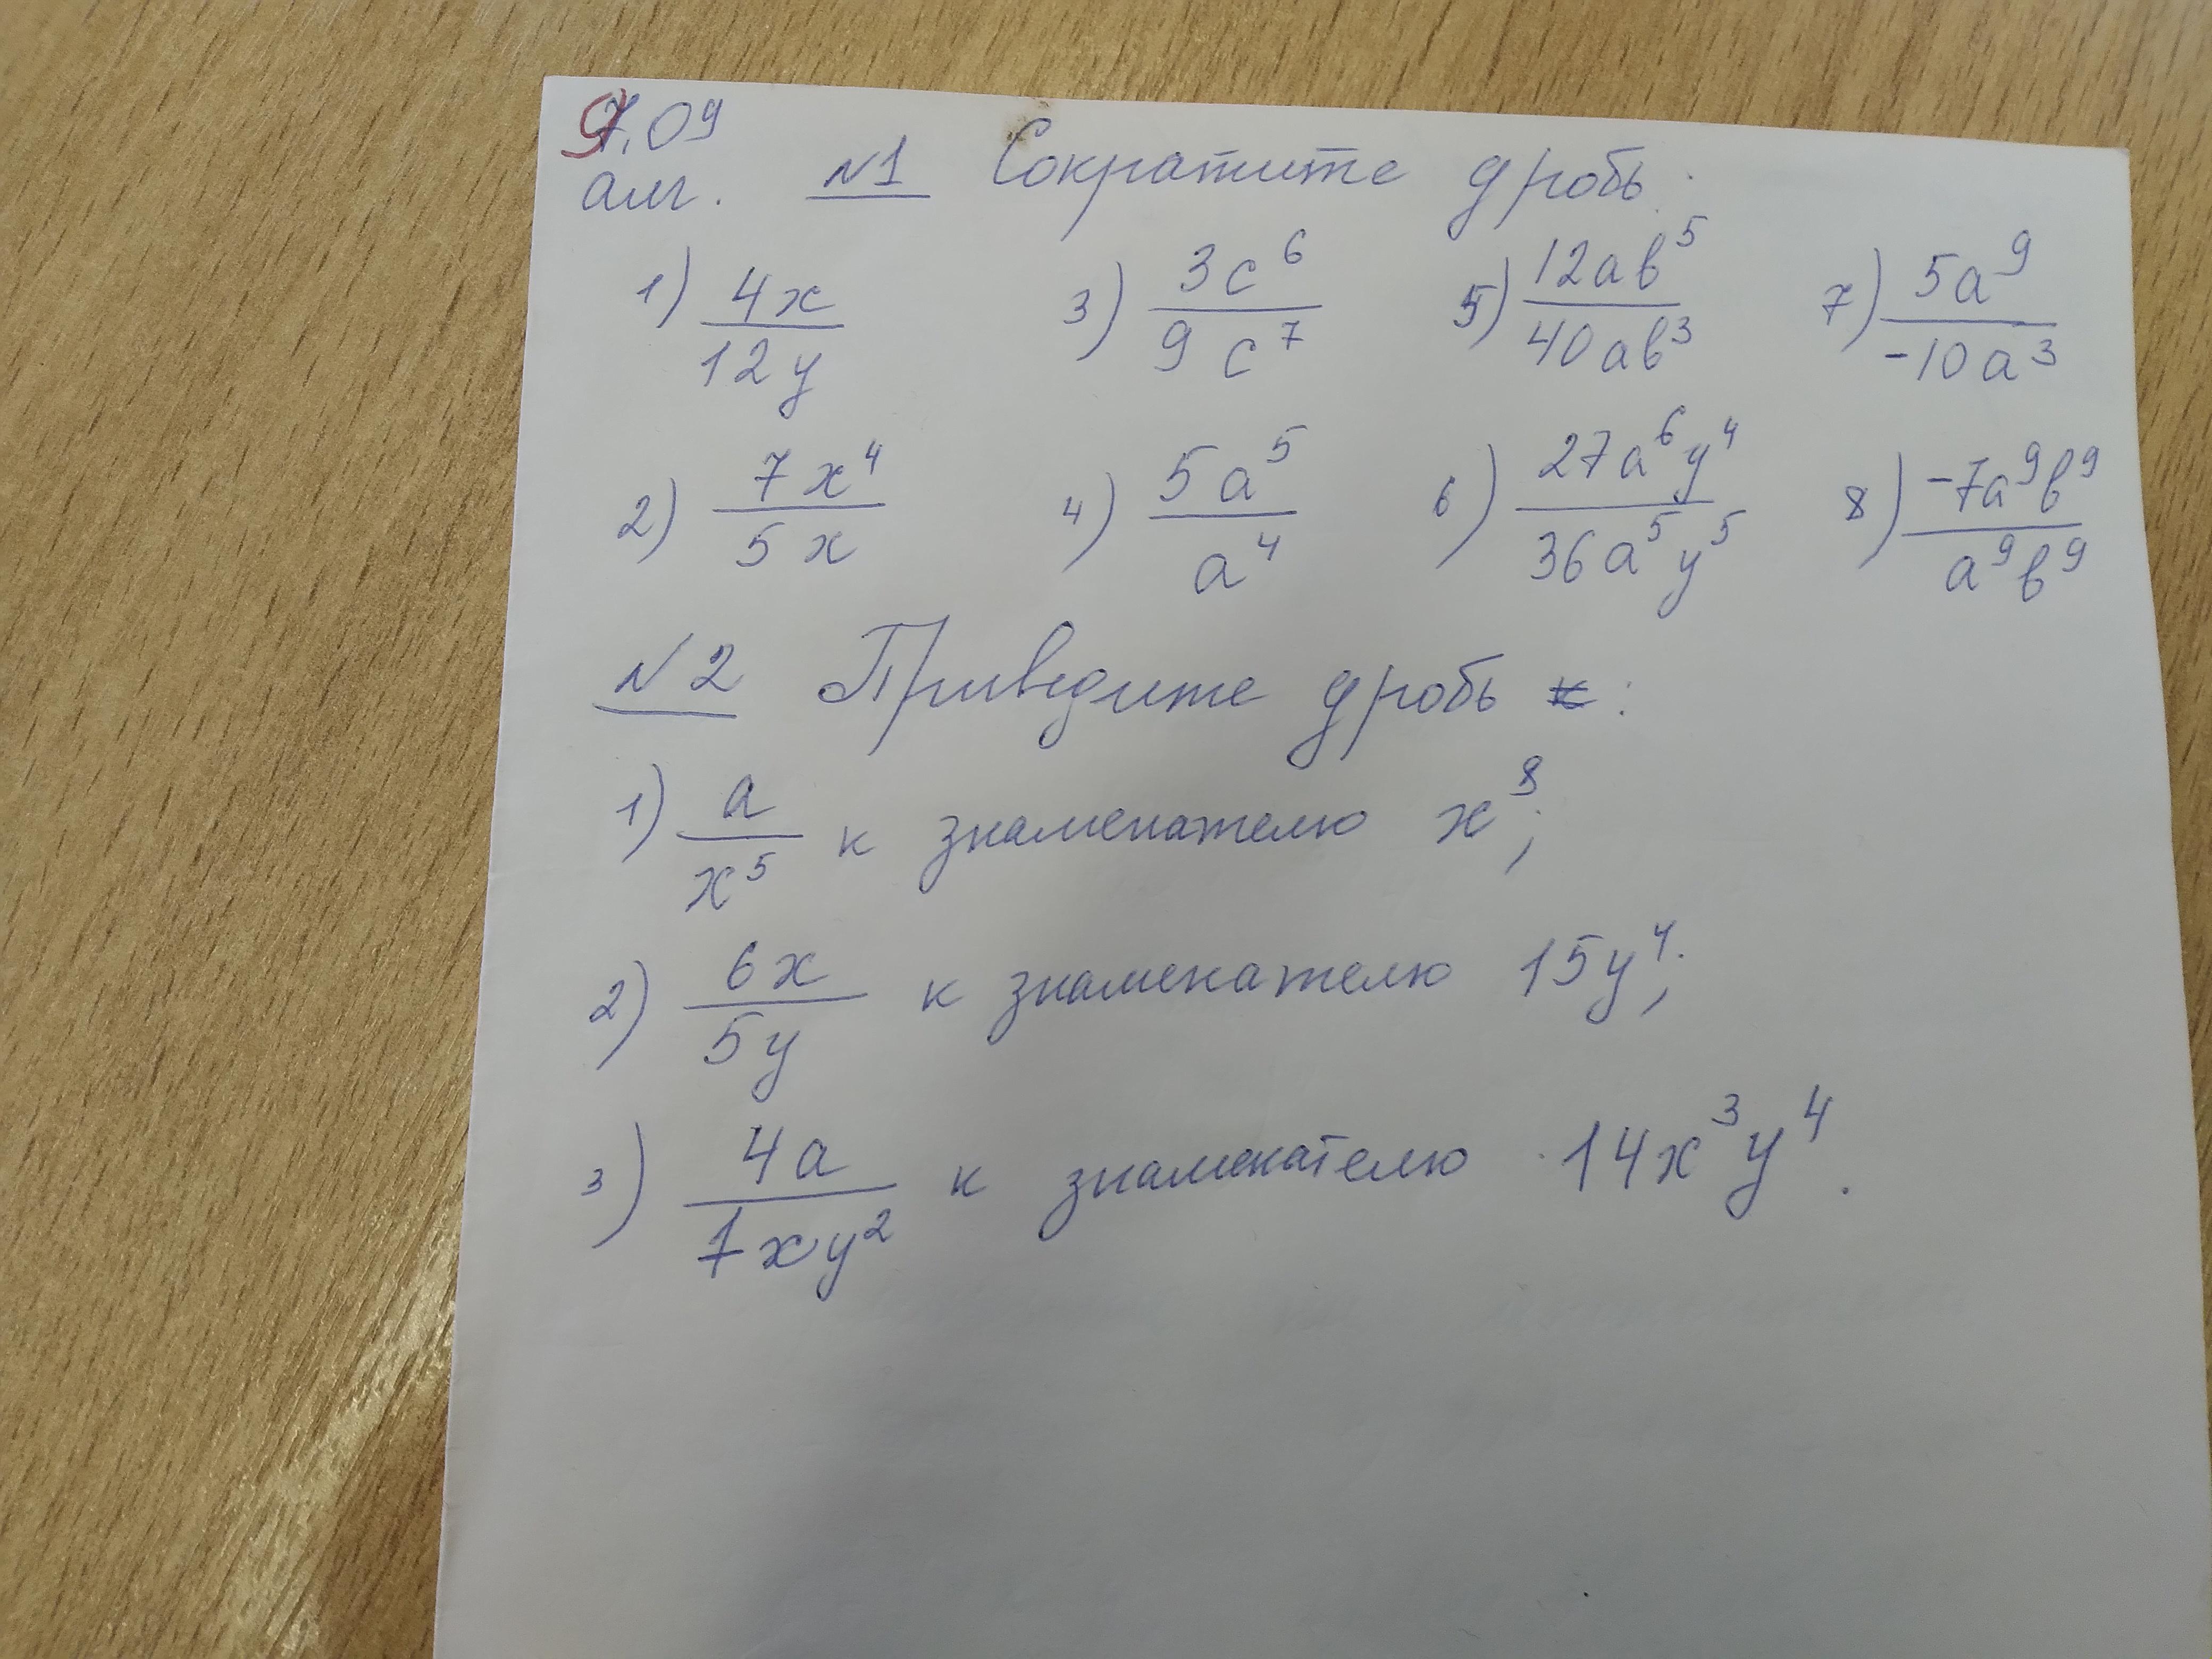 9.09
алг. №1 Сократите дробь:
1) 4x/12y 3) 3c⁶/9c⁷ 5) 12ab⁵/40ab³ 7) 5a⁹/-10a³
2) 7x⁴/5x 4) 5a⁵/a⁴ 6) 27a⁶y⁴/36a⁵y⁵ 8) -7a⁹b⁹/a⁹b⁹
№2 Приведите дробь :
1) a/x⁵ к знаменателю x⁸;
2) 6x/5y к знаменателю 15y⁴;
3) 4a/7xy² к знаменателю 14x³y⁴.